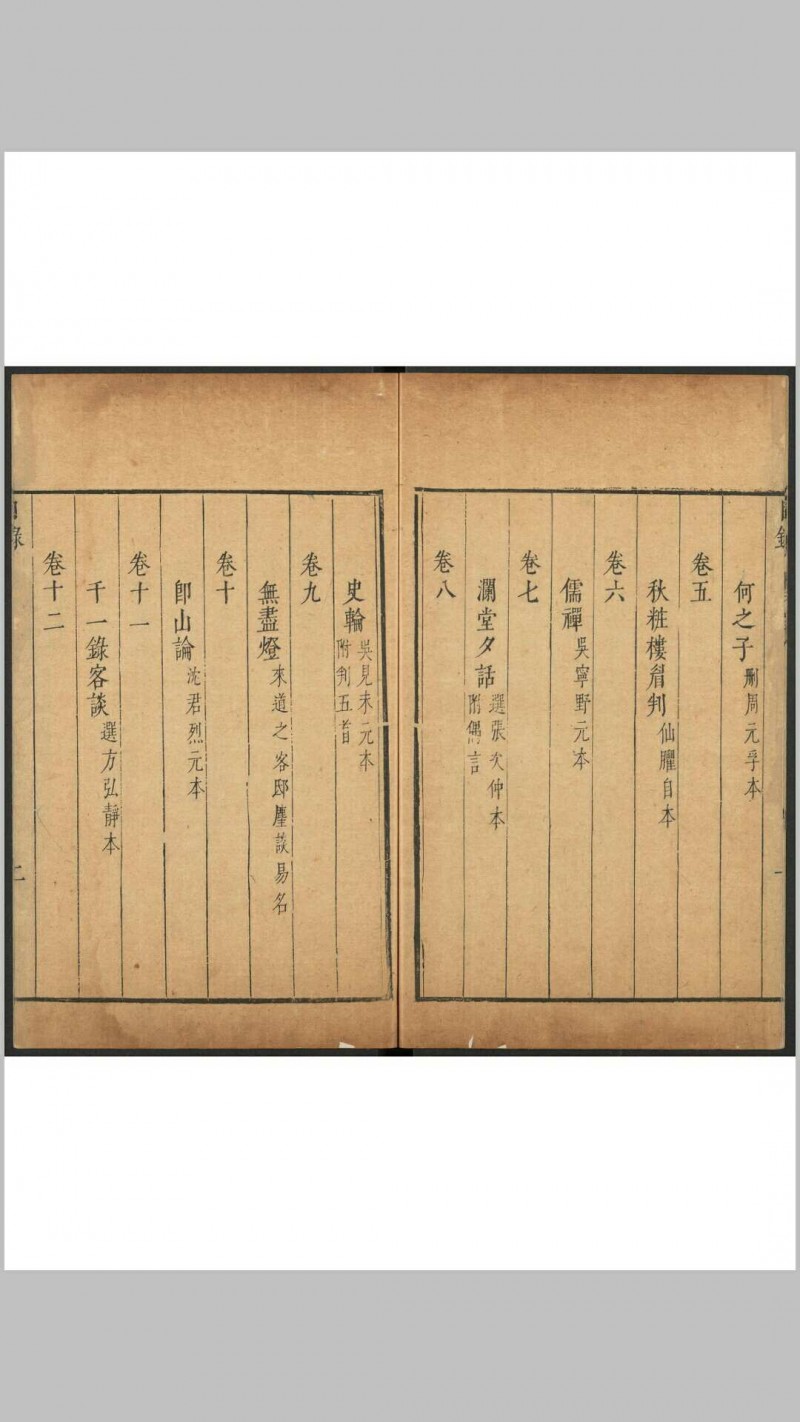 何之子 刪周元孚本
卷五
秋粧樓眉判 仙臞自本
卷六
儒禪 吳寧野元本
卷七
瀾堂夕話 選張次仲本
附偶言
卷八
史輪 吳見末元本
附判五首
卷九
無盡燈 來道之客邸麈談易名
卷十
即山論 沈君烈元本
卷十一
千一錄客談 選方弘靜本
卷十二
目錄
一
二